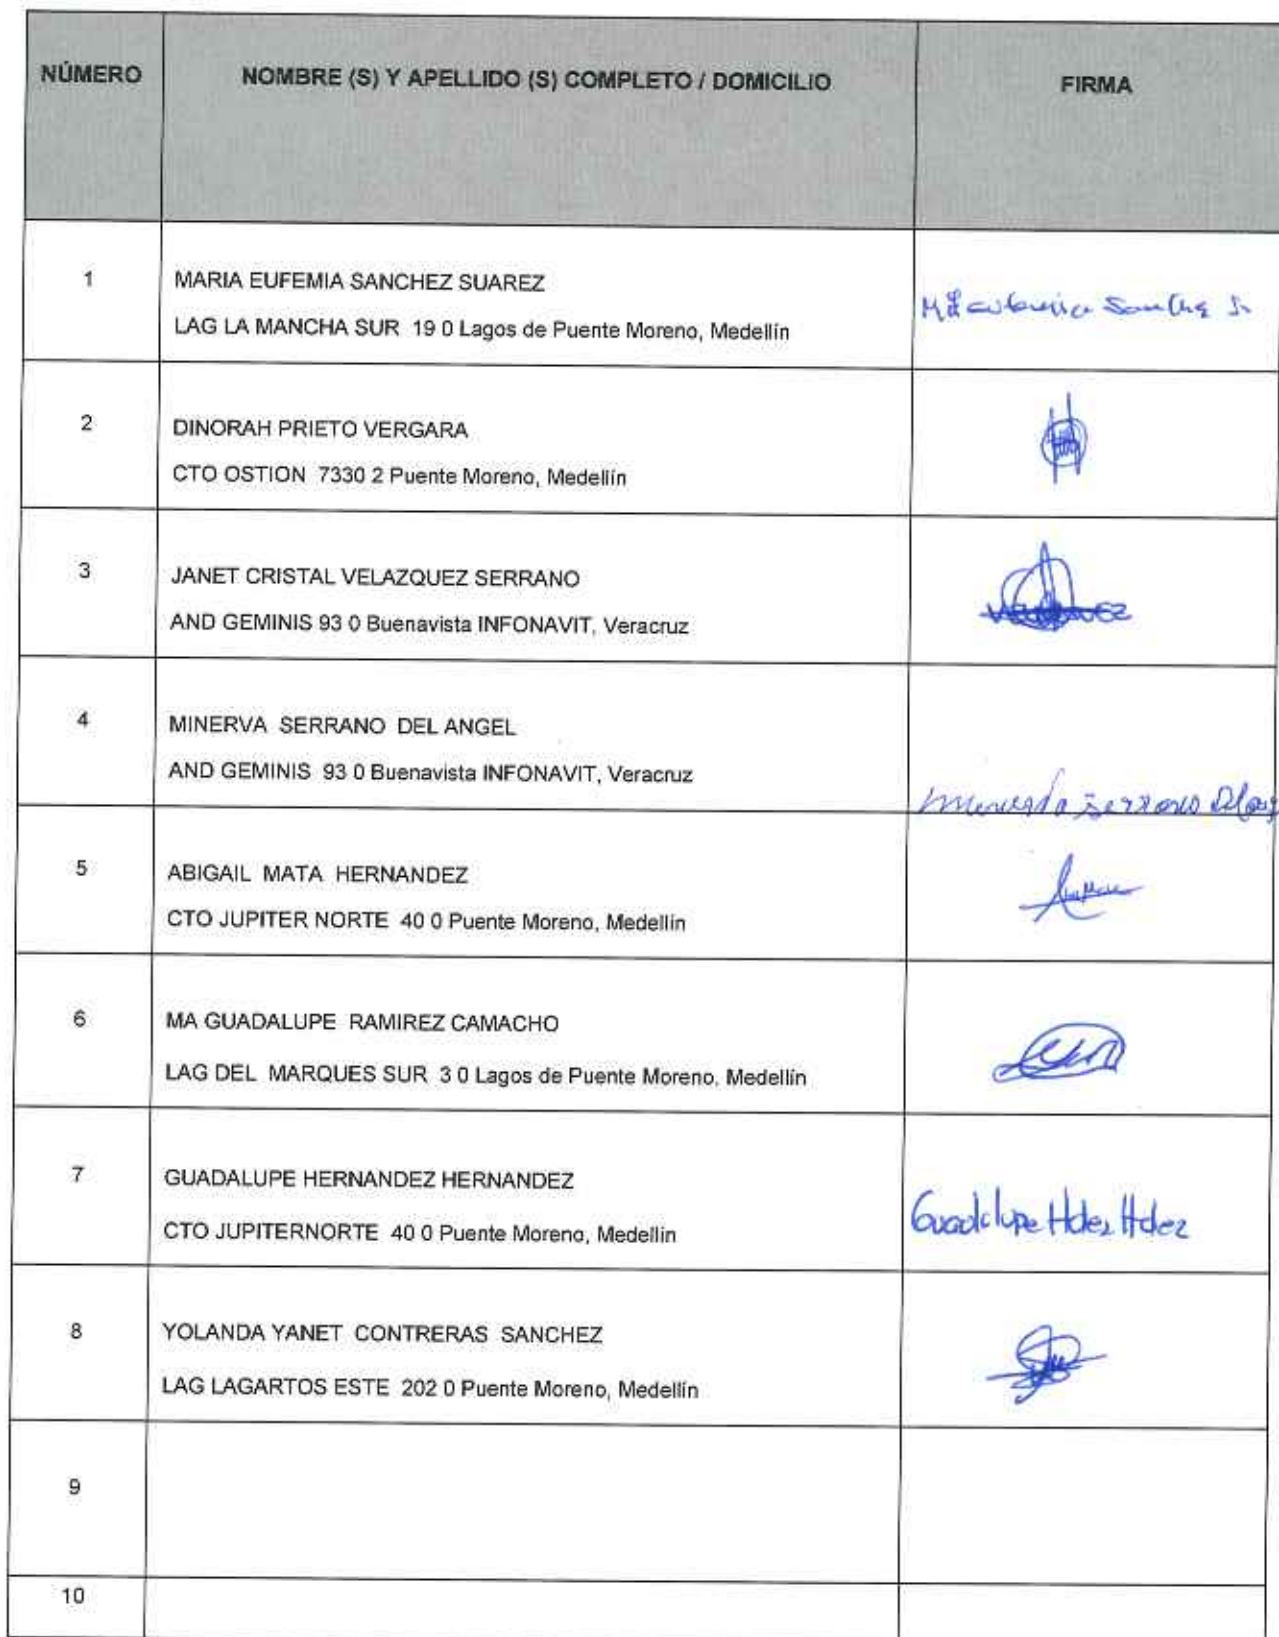 NÚMERO
NOMBRE (S) Y APELLIDO (S) COMPLETO / DOMICILIO
FIRMA
1
MARIA EUFEMIA SANCHEZ SUAREZ
LAG LA MANCHA SUR 19 0 Lagos de Puente Moreno, Medellín
2
DINORAH PRIETO VERGARA
CTO OSTION 7330 2 Puente Moreno, Medellín
3
JANET CRISTAL VELAZQUEZ SERRANO
AND GEMINIS 93 0 Buenavista INFONAVIT, Veracruz
4
MINERVA SERRANO DEL ANGEL
AND GEMINIS 93 0 Buenavista INFONAVIT, Veracruz
5
ABIGAIL MATA HERNANDEZ
CTO JUPITER NORTE 40 0 Puente Moreno, Medellín
6
MA GUADALUPE RAMIREZ CAMACHO
LAG DEL MARQUES SUR 3 0 Lagos de Puente Moreno, Medellín
7
GUADALUPE HERNANDEZ HERNANDEZ
CTO JUPITERNORTE 40 0 Puente Moreno, Medellín
Guadalupe Hdez Hdez
8
YOLANDA YANET CONTRERAS SANCHEZ
LAG LAGARTOS ESTE 202 0 Puente Moreno, Medellín
9
10